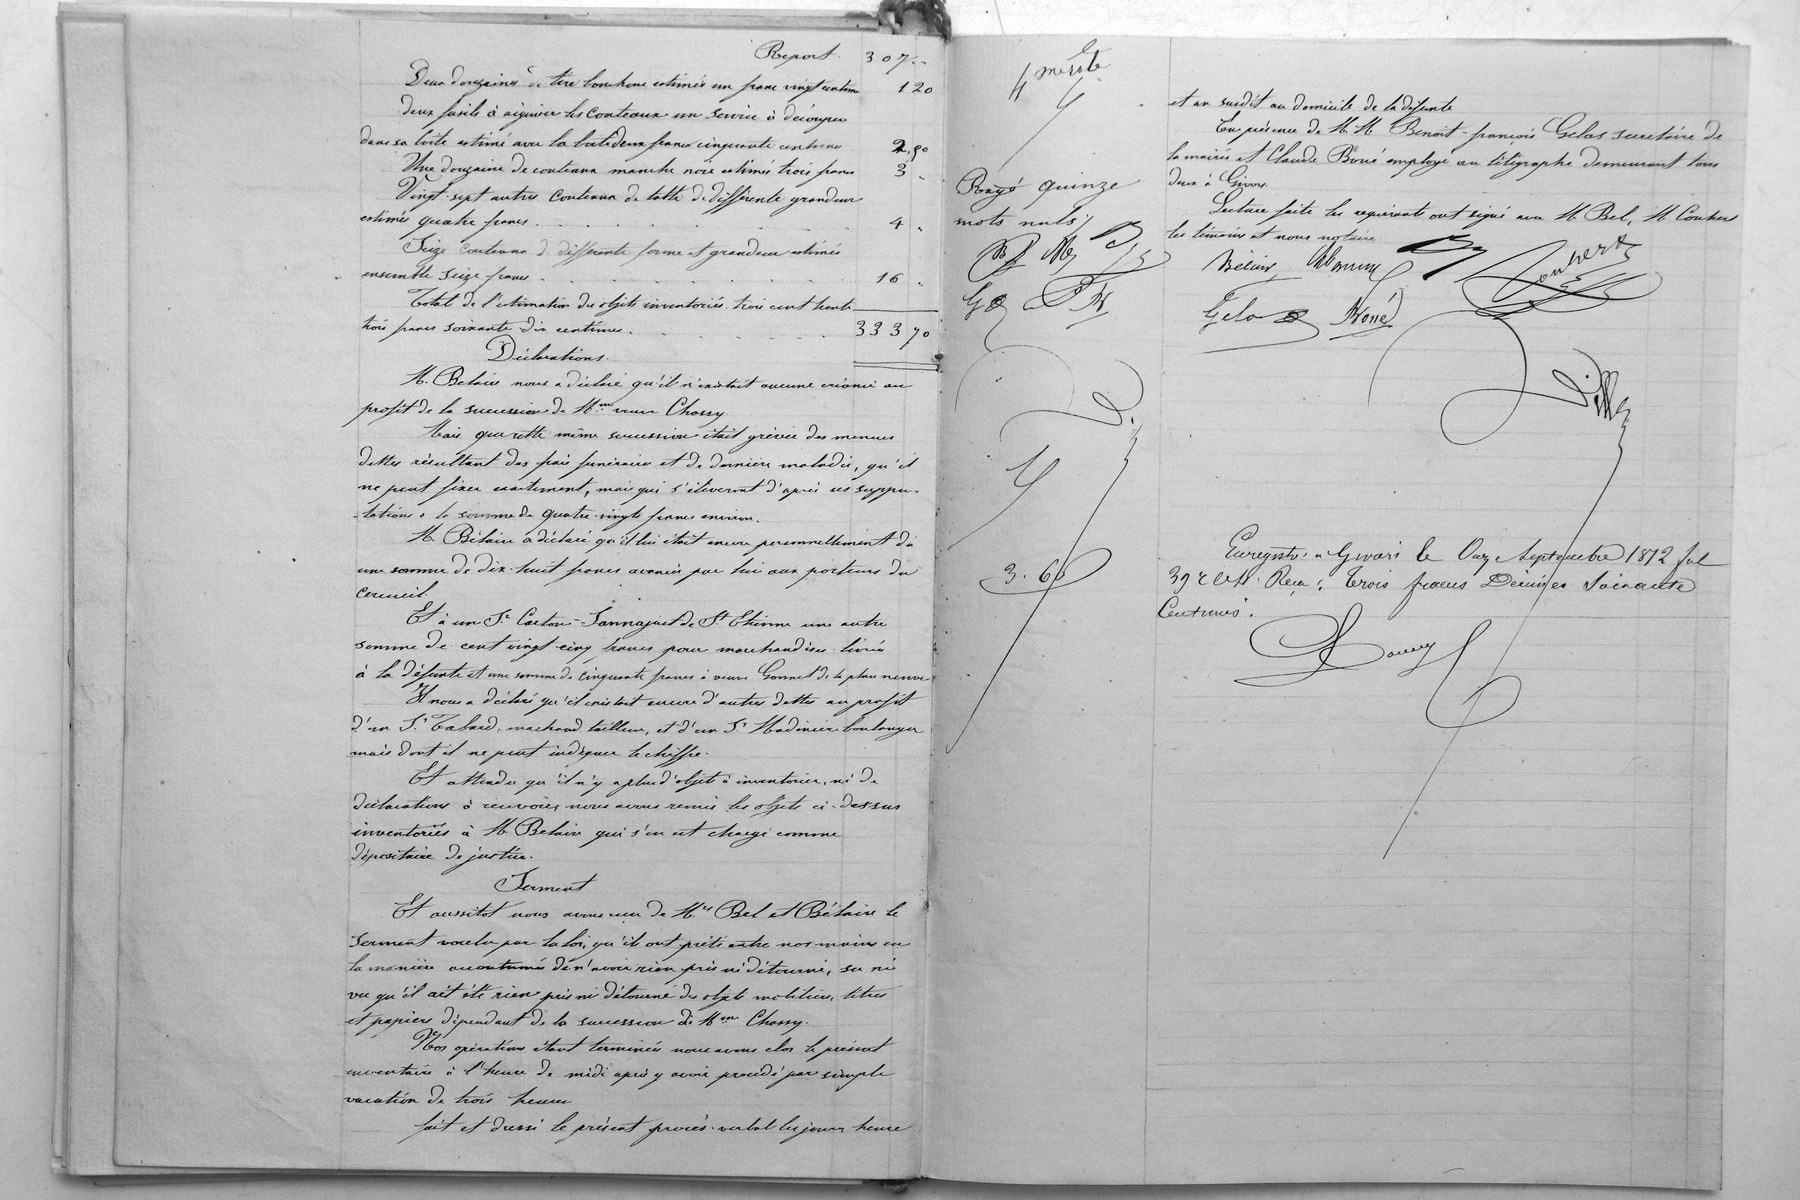 Report. 307 "
Deux douzaines de tire bouchons estimés un franc vingt centimes 1 20
deux fusils à aiguiser les couteaux un service à découper
dans sa boite estimé avec la boite deux francs cinquante centimes 2,50
Une douzaine de couteaux manche noir estimés trois francs 3 "
Vingt-sept autres couteaux de table de différente grandeur
estimés quatre francs 4 "
Seize couteaux de différente forme et grandeur estimés
ensemble seize francs 16 "
Total de l'estimation des objets inventoriés trois cent trente
trois francs soixante dix centimes. 333 70
Déclarations.
M. Belair nous a déclaré qu'il n'existait aucune créance au
profit de la succession de Mme veuve Chossy
Mais que cette même succession était grevée des menues
dettes résultant des frais funéraires et de dernière maladie, qu'il
ne peut fixer exactement, mais qui s'élèveront d'après ses suppu-
-tations à la somme de quatre-vingts francs environ.
M. Bélair a déclaré qu'il lui était encore personnellement dû
une somme de dix-huit francs avancée par lui aux porteurs du
cercueil.
Et à un Sr de St Etienne une autre
somme de cent vingt cinq francs pour marchandises livrées
à la défunte et une somme de cinquante francs à veuve Gonnet de la
Il nous a déclaré qu'il existait encore d'autres dettes au profit
d'un Sr Tabard, marchand tailleur, et d'un Sr Madinier boulanger
mais dont il ne peut indiquer le chiffre.
Et attendu qu'il n'y a plus d'objets à inventorier, ni de
déclarations à recevoir, nous avons remis les objets ci-dessus
inventoriés à M. Belair qui s'en est chargé comme
dépositaire de justice.
Serment
Et aussitot nous avons reçu de Mrs Bel et Bélair le
serment voulu par la loi, qu'ils ont prêté entre nos mains en
la manière accoutumée de n'avoir rien pris ni détourné, su ni
vu qu'il ait été rien pris ni détourné des objets mobiliers, titres
et papiers dépendant de la succession de Mme Chossy.
Nos opérations étant terminées nous avons clos le présent
inventaire à l'heure de midi après y avoir procédé par simple
vacation de trois heures
fait et dressé le présent procès-verbal les jour, heure
Rayé quinze
mots nuls
3.60
et an susdit au domicile de la défunte
En présence de M. M. Benoit-françois Gelas secrétaire de
la mairie et Claude Boué employé au télégraphe demeurant tous
deux à Givors.
Lecture faite les requérants ont signé avec M. Bel, M. Couhert
les témoins et nous notaire
Gelas Boué
Enregistré à Givors le Onze Septembre 1872 fol
39 Reçu: Trois francs Décimes Soixante
Centimes.